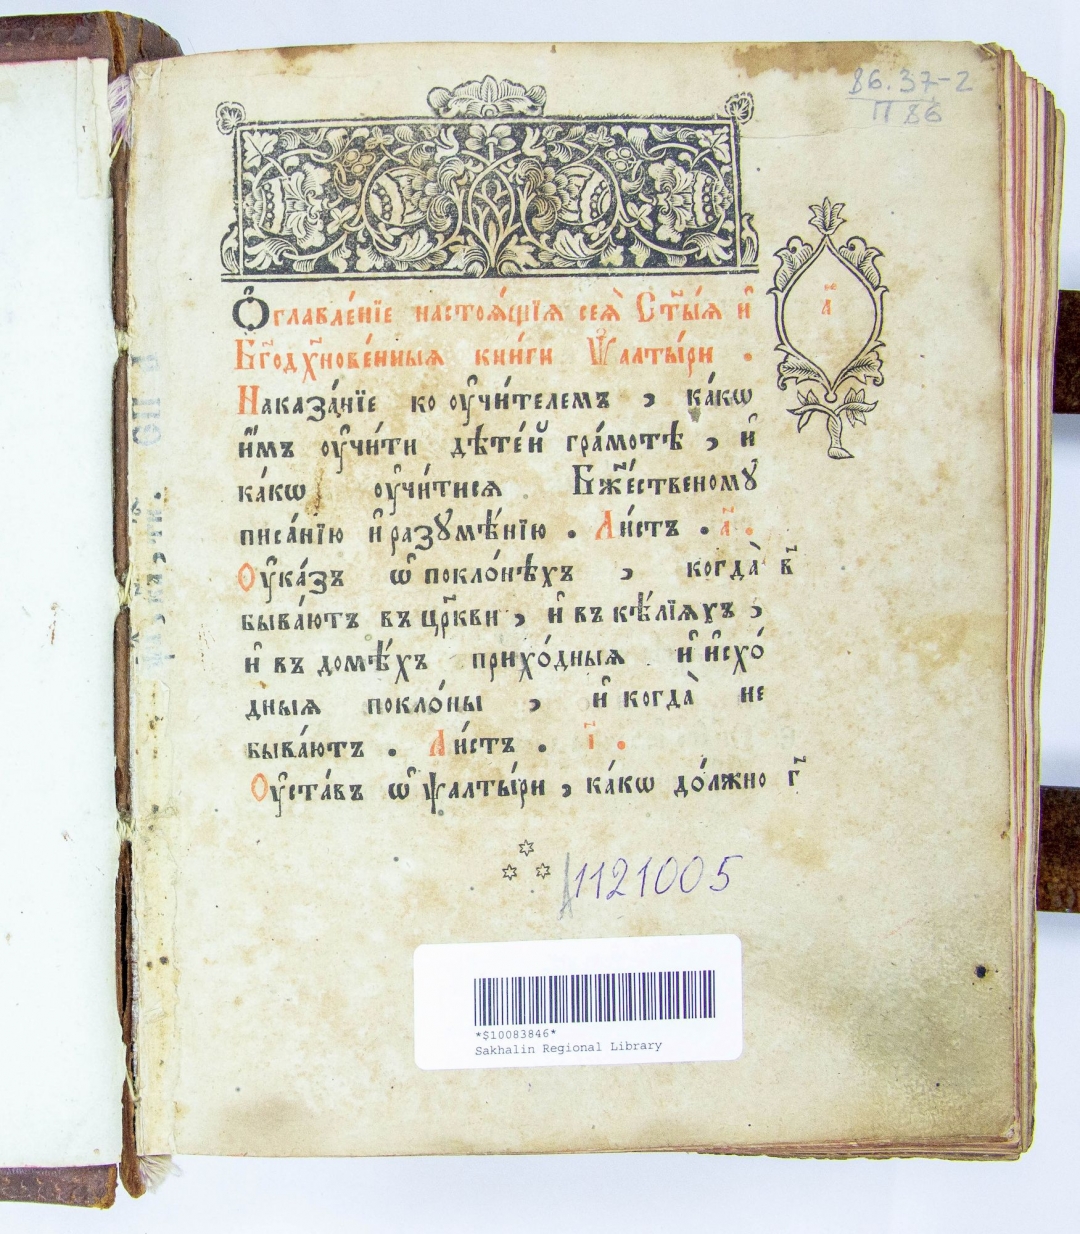 86.37-2
П 86
Ѻ҆главле́нїе настоѧ́щїѧ сеѧ̀ Ст҃ы́ѧ и҆
Бг҃одх҃нове́нныѧ кни́ги Ѱалты́ри .
а҃
Наказа́нїе ко ᲂу҆чи́телемъ , ка́кѡ
и҆̀мъ ᲂу҆чи́ти дѣте́й гра́мотѣ , и҆
ка́кѡ ᲂу҆чи́тисѧ Бж҃е́ственомꙋ
писа́нїю и҆ разꙋмѣ́нїю . Ли́стъ . а҃ .
Оу҆ка́зъ ѡ҆ покло́нѣхъ , когда̀ в҃
быва́ютъ въ цр҃кви , и҆ въ кѣ́лїѧхъ ,
и҆ въ домѣ́хъ прихо́дныѧ и҆ и҆схо́
дныѧ покло́ны , и҆ когда̀ не
быва́ютъ . Ли́стъ . і҃ .
Оу҆ста́въ ѡ҆ ѱалты́ри , ка́кѡ до́лжно г҃
1121005
*$10083846*
Sakhalin Regional Library